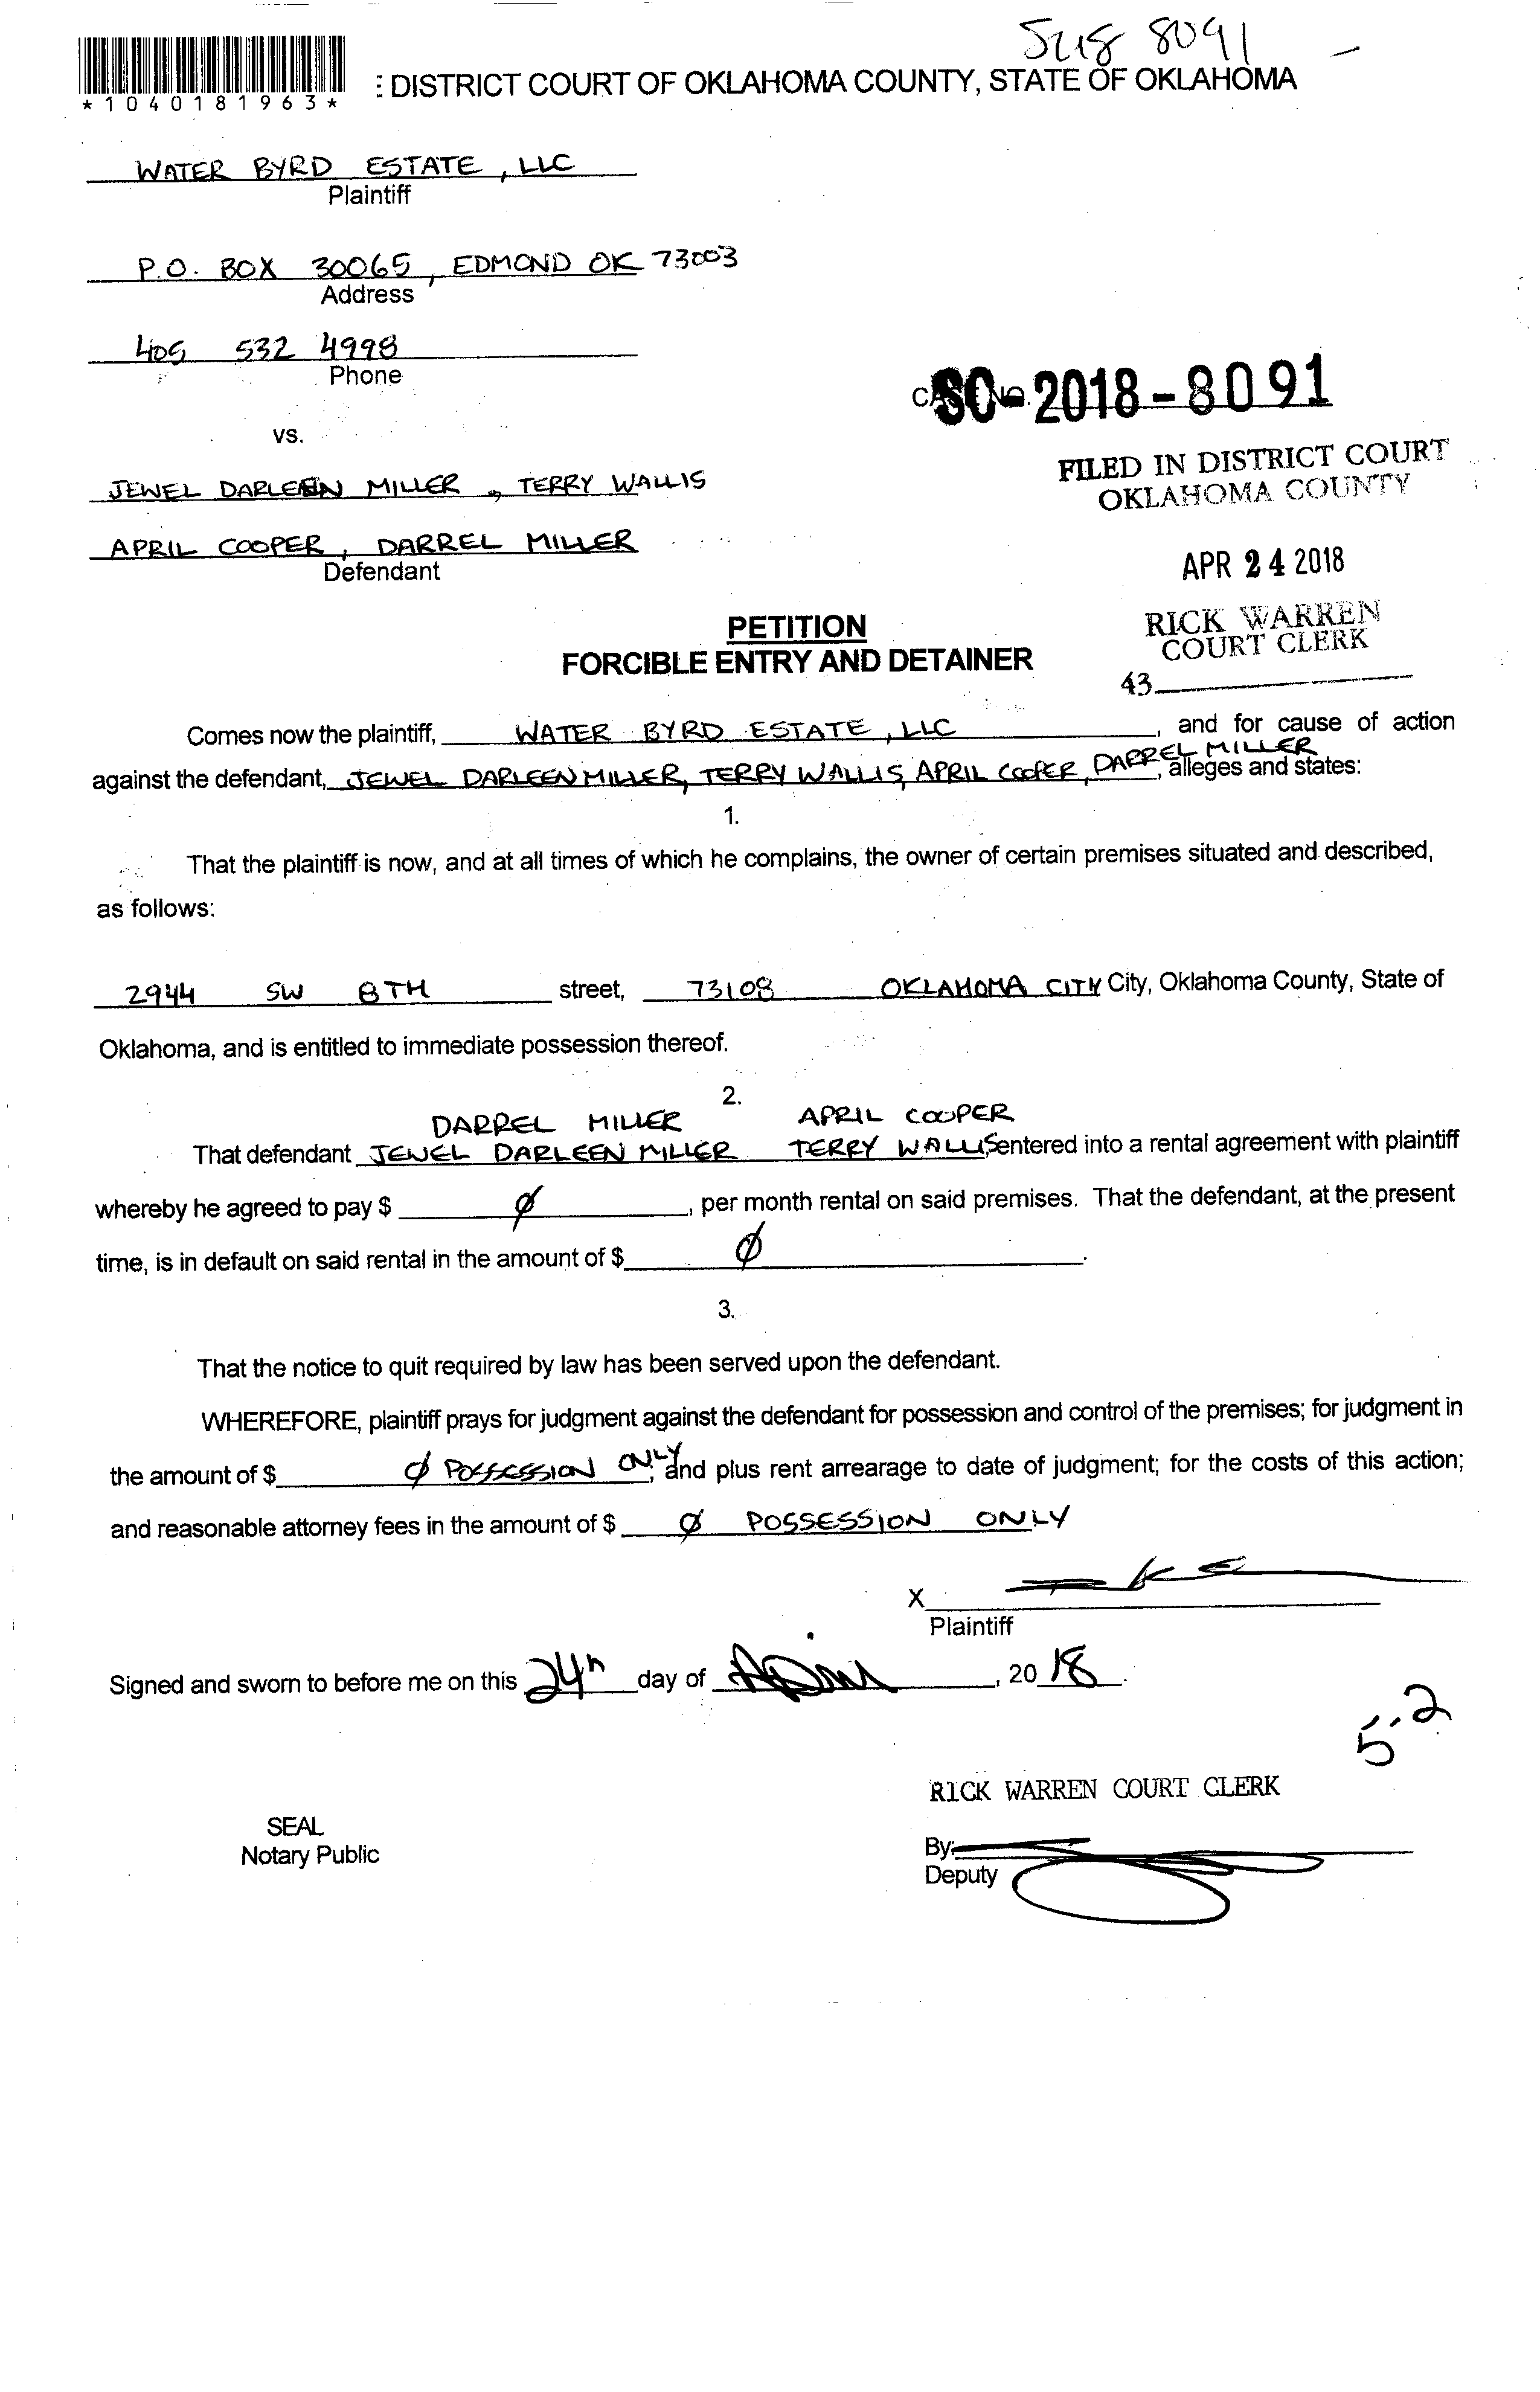 8091
*1040181963*
: DISTRICT COURT OF OKLAHOMA COUNTY, STATE OF OKLAHOMA
WATER BYRD ESTATE, LLC
Plaintiff
P.O. BOX 30065, EDMOND OK 73003
Address
405 532 4998
Phone
CASE NO. SC-2018-8091
vs.
FILED IN DISTRICT COURT
OKLAHOMA COUNTY
JEWEL DARLEEN MILLER, TERRY WALLIS
APRIL COOPER, DARREL MILLER
Defendant
APR 24 2018
RICK WARREN
COURT CLERK
43
PETITION
FORCIBLE ENTRY AND DETAINER
Comes now the plaintiff, WATER BYRD ESTATE, LLC, and for cause of action
against the defendant, JEWEL DARLEEN MILLER, TERRY WALLIS, APRIL COOPER, DARREL MILLER, alleges and states:
1.
That the plaintiff is now, and at all times of which he complains, the owner of certain premises situated and described,
as follows:
2944 SW 8TH street, 73108 OKLAHOMA CITY City, Oklahoma County, State of
Oklahoma, and is entitled to immediate possession thereof.
2.
DARREL MILLER APRIL COOPER
That defendant JEWEL DARLEEN MILLER TERRY WALLIS entered into a rental agreement with plaintiff
whereby he agreed to pay $ Ø, per month rental on said premises. That the defendant, at the present
time, is in default on said rental in the amount of $ Ø.
3.
That the notice to quit required by law has been served upon the defendant.
WHEREFORE, plaintiff prays for judgment against the defendant for possession and control of the premises; for judgment in
the amount of $ Ø POSSESSION ONLY, and plus rent arrearage to date of judgment; for the costs of this action;
and reasonable attorney fees in the amount of $ Ø POSSESSION ONLY
X
Plaintiff
Signed and sworn to before me on this 24th day of April, 2018.
RICK WARREN COURT CLERK
SEAL
Notary Public
By:
Deputy